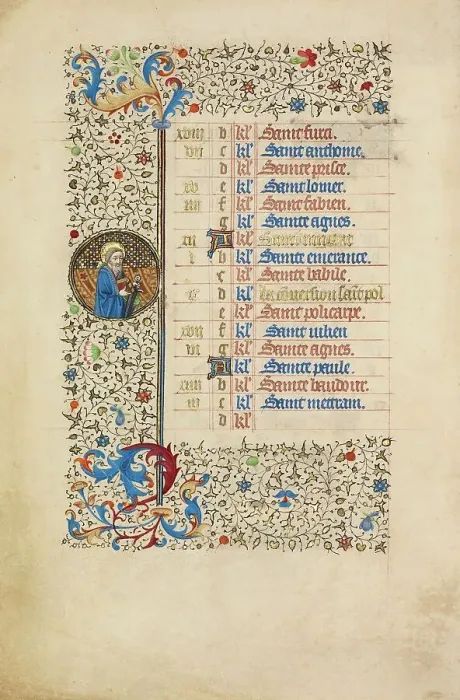 xviii b kl' Saint furci.
vii c kl' Saint anthoine.
d kl' Sainte prisce.
xv e kl' Saint lomer.
iiii f kl' Saint fabien.
g kl' Sainte agnes.
xii A kl' Saint
i b kl' Sainte emerance.
c kl' Sainte babile.
ix d kl' la conversion saint pol
e kl' Sainte policarpe.
xvii f kl' Saint iulien
vi g kl' Sainte agnes.
A kl' Sainte paule.
xiiii b kl' Sainte baudour.
iii c kl' Saint metran.
d kl'